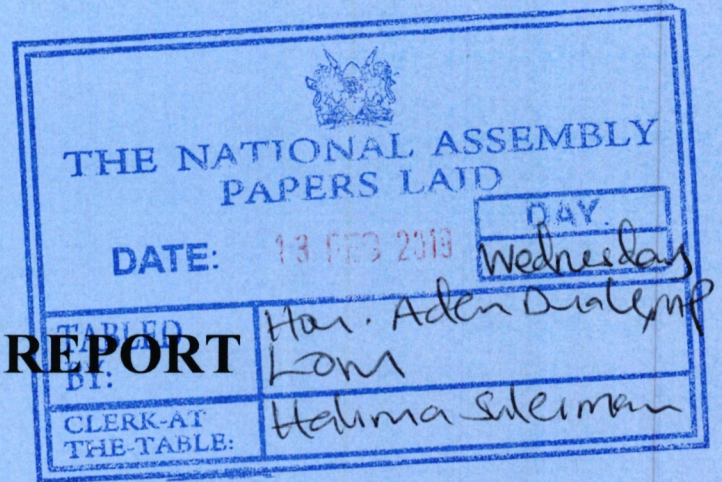 THE NATIONAL ASSEMBLY
PAPERS LAID
DAY.
DATE: 13 FEB 2019 Wednesday
TABLED BY: Hon. Aden Duale, MP
LOM
REPORT
CLERK-AT THE-TABLE: Halima Suleiman